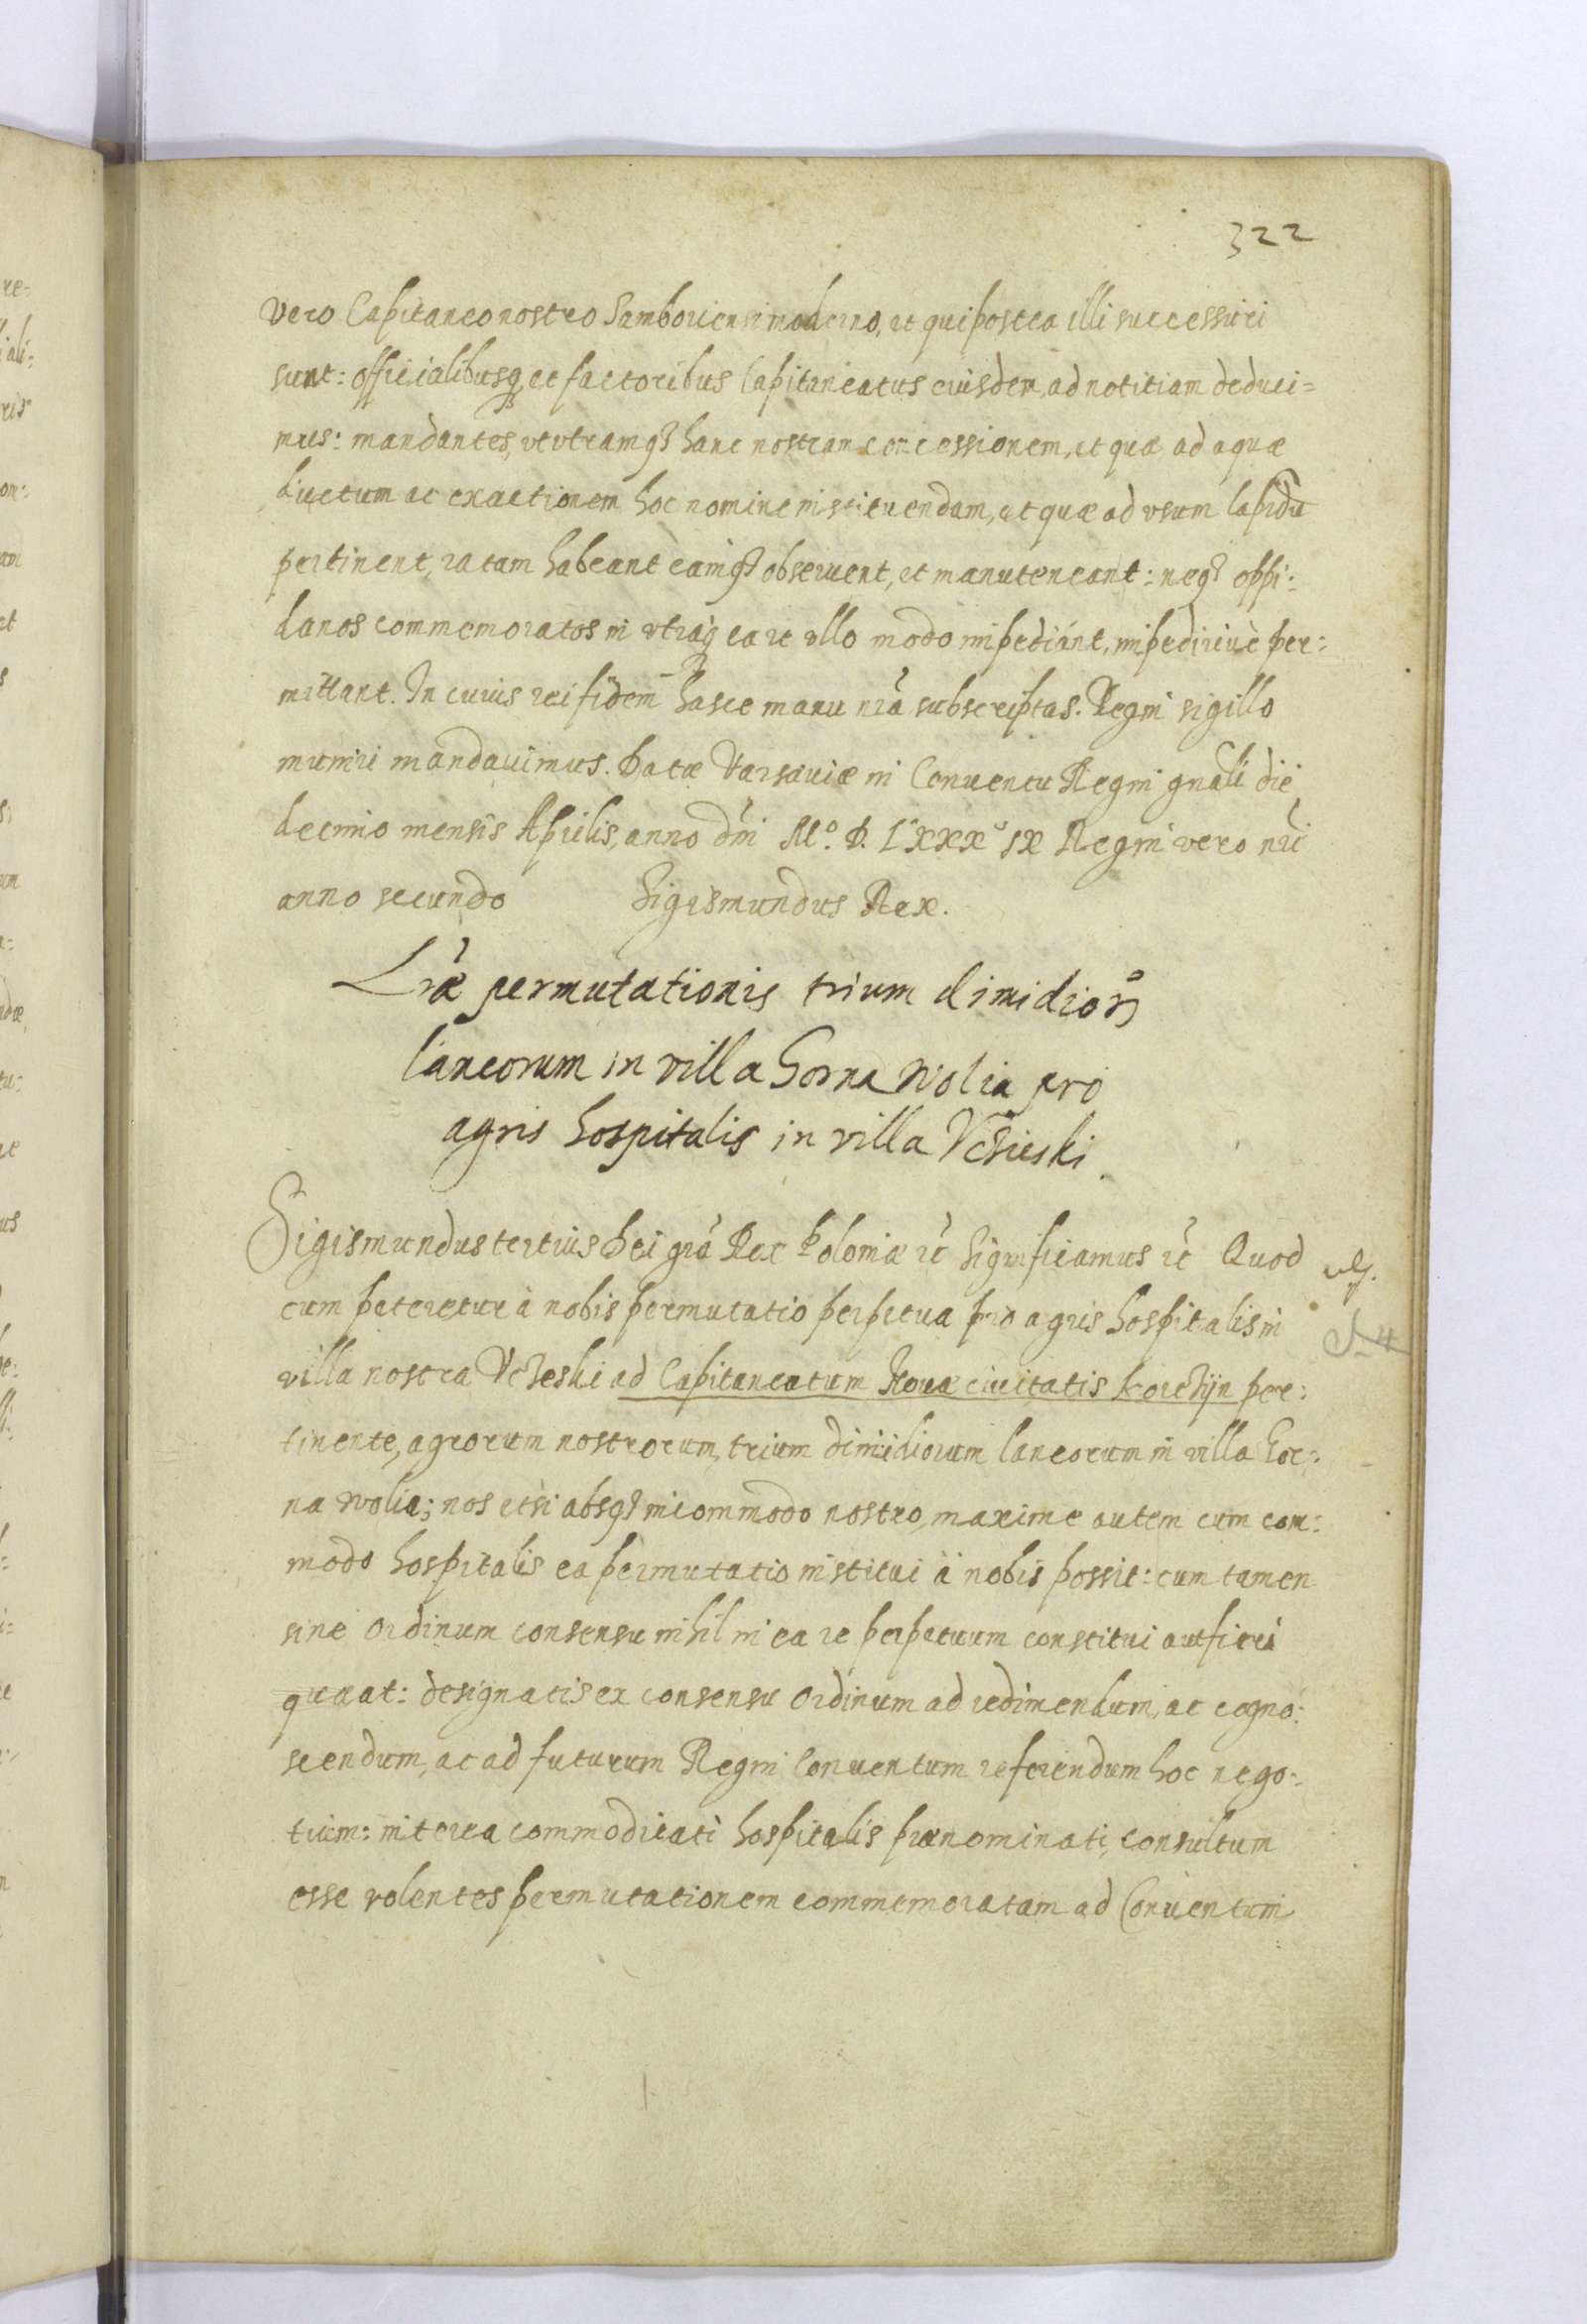 322
vero Capitaneo nostro Samboriensi moderno, et qui postea illi successuri
sunt: officialibusq3 et factoribus Capitaneatus eiusdem, ad notitiam deduci=
mus: mandantes, ut utramq3 hanc nostram concessionem, et quæ ad aquæ
ductum ac exactionem hoc nomine instituendam, et quæ ad usum lapidu
pertinent, ratam habeant eamq3 observent, et manuteneant: neq3 oppi:
danos commemoratos in utraq3 ea re ullo modo impediant, impedirivè per:
mittant. In cuius rei fidem hasce manu nrã subscriptas. Regni sigillo
muniri mandavimus. Datæ Varsaviæ in Conventu Regni gnãli die
decimo mensis Aprilis, anno dñi Mº. D. LXXXIX Regni vero nri
anno secundo Sigismundus Rex.
Lræ permutationis trium dimidior
laneorum in villa Gorna Wolia pro
agris hospitalis in villa Vchieski.
Sigismundus tertius Dei grã Rex Poloniæ etc Significamus etc Quod
cum peteretur à nobis permutatio perpetua pro agris hospitalis in
villa nostra Vcheski ad Capitaneatum Novæ civitatis Korchÿn per:
tinente, agrorum nostrorum, trium dimidiorum laneorum in villa Gor:
na Wolia; nos etsi absq3 incommodo nostro, maxime autem cum com:
modo hospitalis ea permutatio institui à nobis possit: cum tamen
sine Ordinum consensu nihil in ea re perpetuum constitui aut fieri
queat: designatis ex consensu Ordinum ad redimendum, ac cogno:
scendum, ac ad futurum Regni Conventum referendum hoc nego:
tium: interea commoditati hospitalis prænominati, consultum
esse volentes permutationem commemoratam ad Conventum